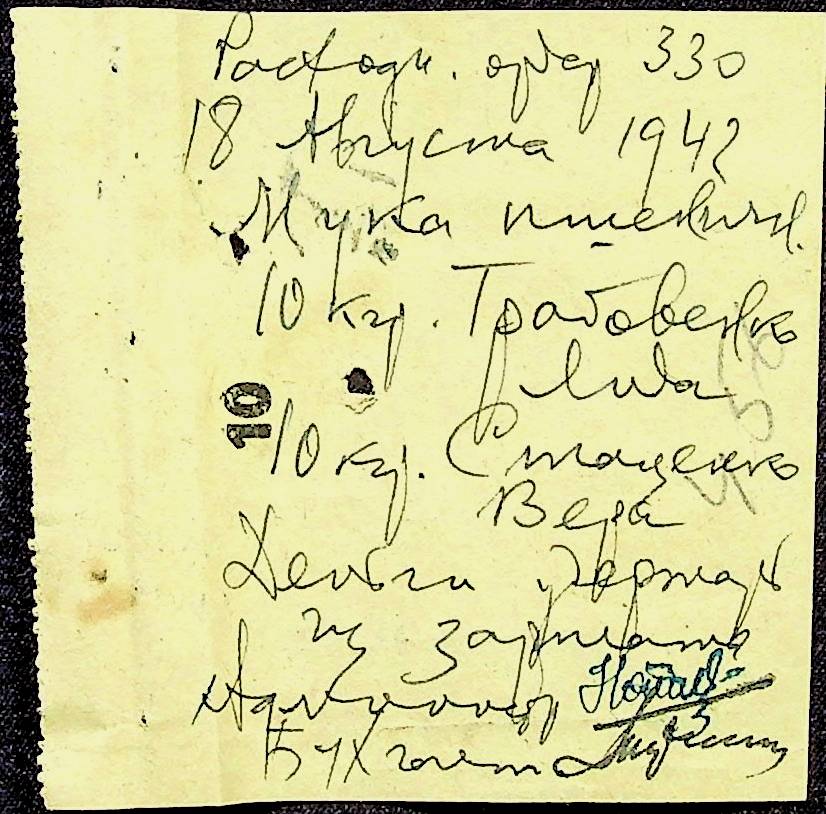 Расходн. ордер 330
18 Августа 1942
Мука пшеничн.
10 кгр. Грабовенко
Лида
10 10 кгр. Стаценко
Вера
Деньги удержать
из зарплаты
Бухгалт